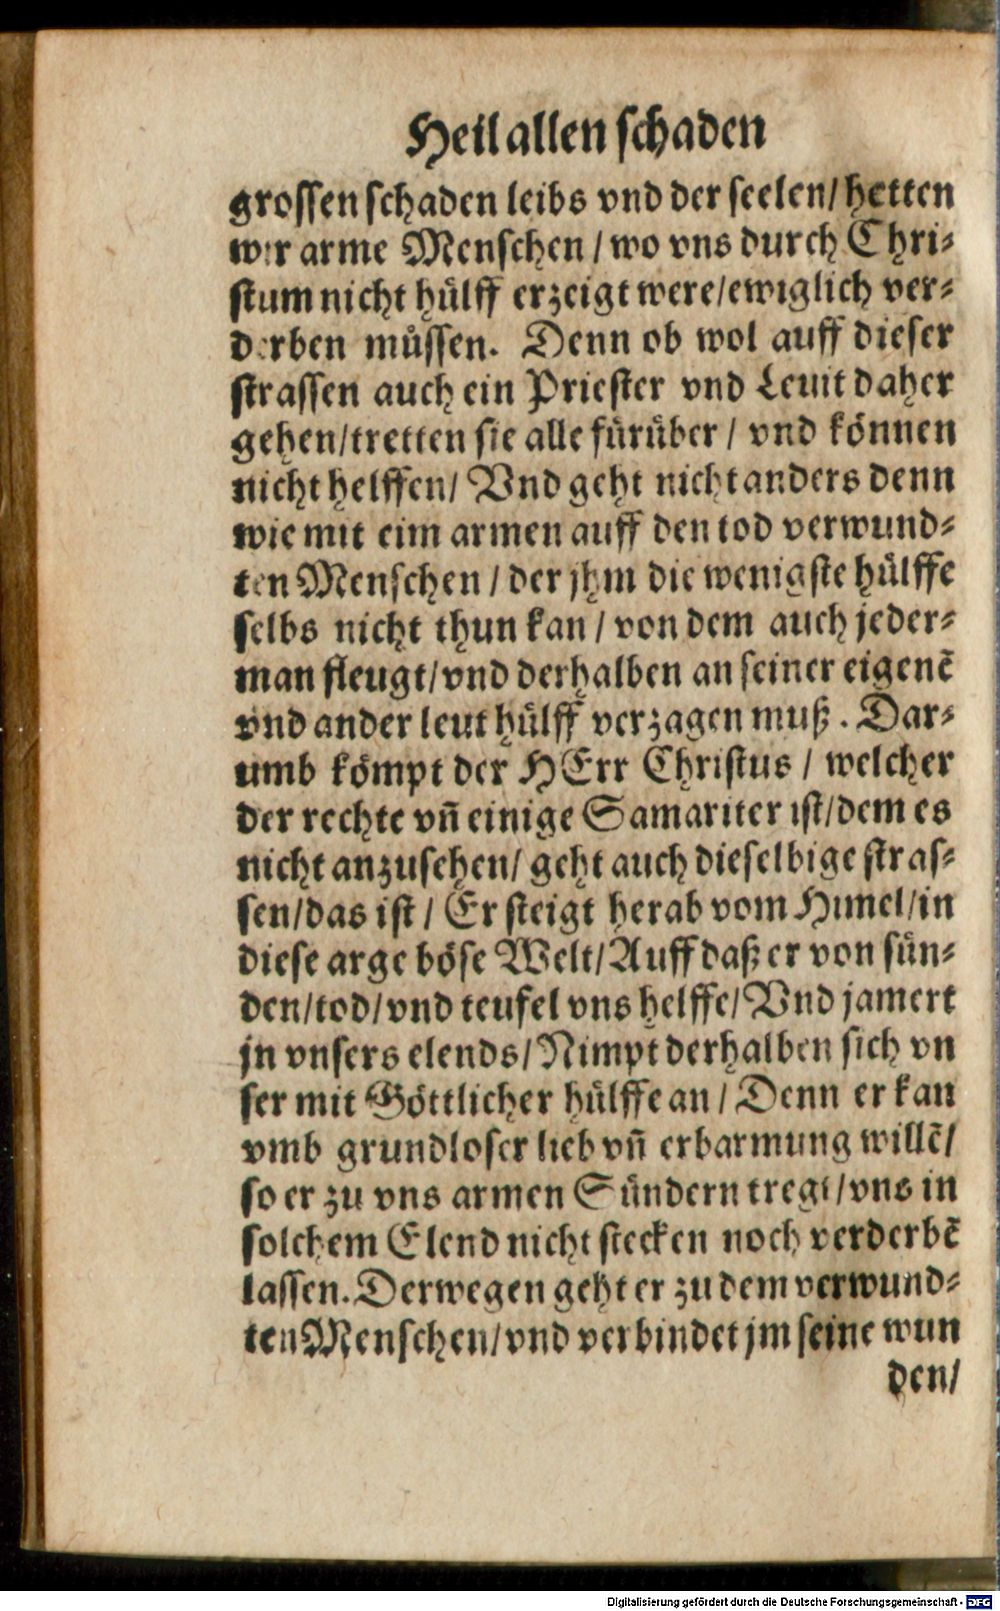 Heil allen schaden
grossen schaden leibs vnd der seelen/ hetten
wir arme Menschen / wo vns durch Chri⸗
stum nicht huͤlff erzeigt were/ewiglich ver⸗
derben muͤssen. Denn ob wol auff dieser
strassen auch ein Priester vnd Leuit daher
gehen/tretten sie alle fuͤruͤber / vnd koͤnnen
nicht helffen/ Vnd geht nicht anders denn
wie mit eim armen auff den tod verwund⸗
ten Menschen / der jhm die wenigste huͤlffe
selbs nicht thun kan / von dem auch jeder⸗
man fleugt/vnd derhalben an seiner eigenē
vnd ander leut huͤlff verzagen muß. Dar⸗
umb koͤmpt der HErr Christus / welcher
der rechte vñ einige Samariter ist/dem es
nicht anzusehen/ geht auch dieselbige stras⸗
sen/das ist / Er steigt herab vom Himel/in
diese arge boͤse Welt/Auff daß er von suͤn⸗
den/tod/vnd teufel vns helffe/Vnd jamert
jn vnsers elends/Nimpt derhalben sich vn
ser mit Goͤttlicher huͤlffe an / Denn er kan
vmb grundloser lieb vñ erbarmung willē/
so er zu vns armen Suͤndern tregt/vns in
solchem Elend nicht stecken noch verderbē
lassen. Derwegen geht er zu dem verwund⸗
ten Menschen/vnd verbindet jm seine wun
den/
Digitalisierung gefördert durch die Deutsche Forschungsgemeinschaft - DFG